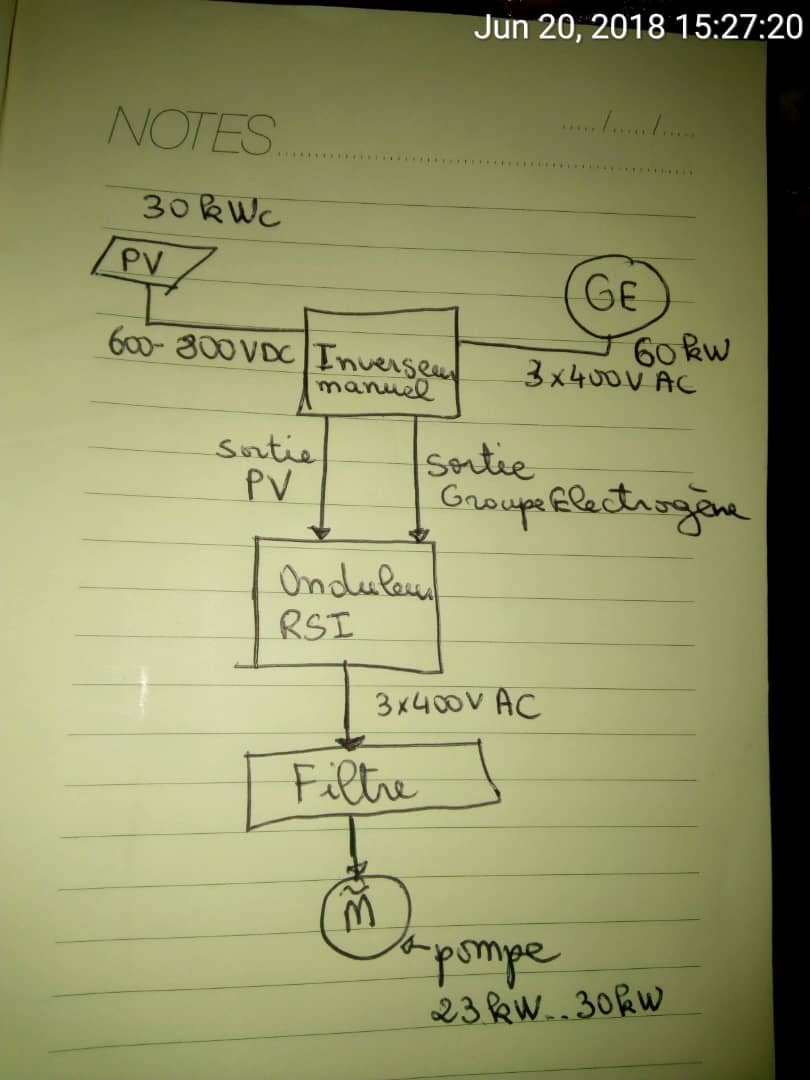 Jun 20, 2018 15:27:20
NOTES ..../..../....
30 kWc
PV
GE
600-800VDC
60 kW
3x400V AC
Inverseur
manuel
sortie
PV
sortie
Groupe Electrogène
Onduleur
RSI
3x400V AC
Filtre
M̃
pompe
23kW..30kW